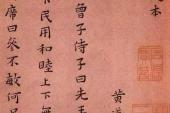 本
黃
曾子侍子曰先王
民用和睦上下無
席曰參不敏何